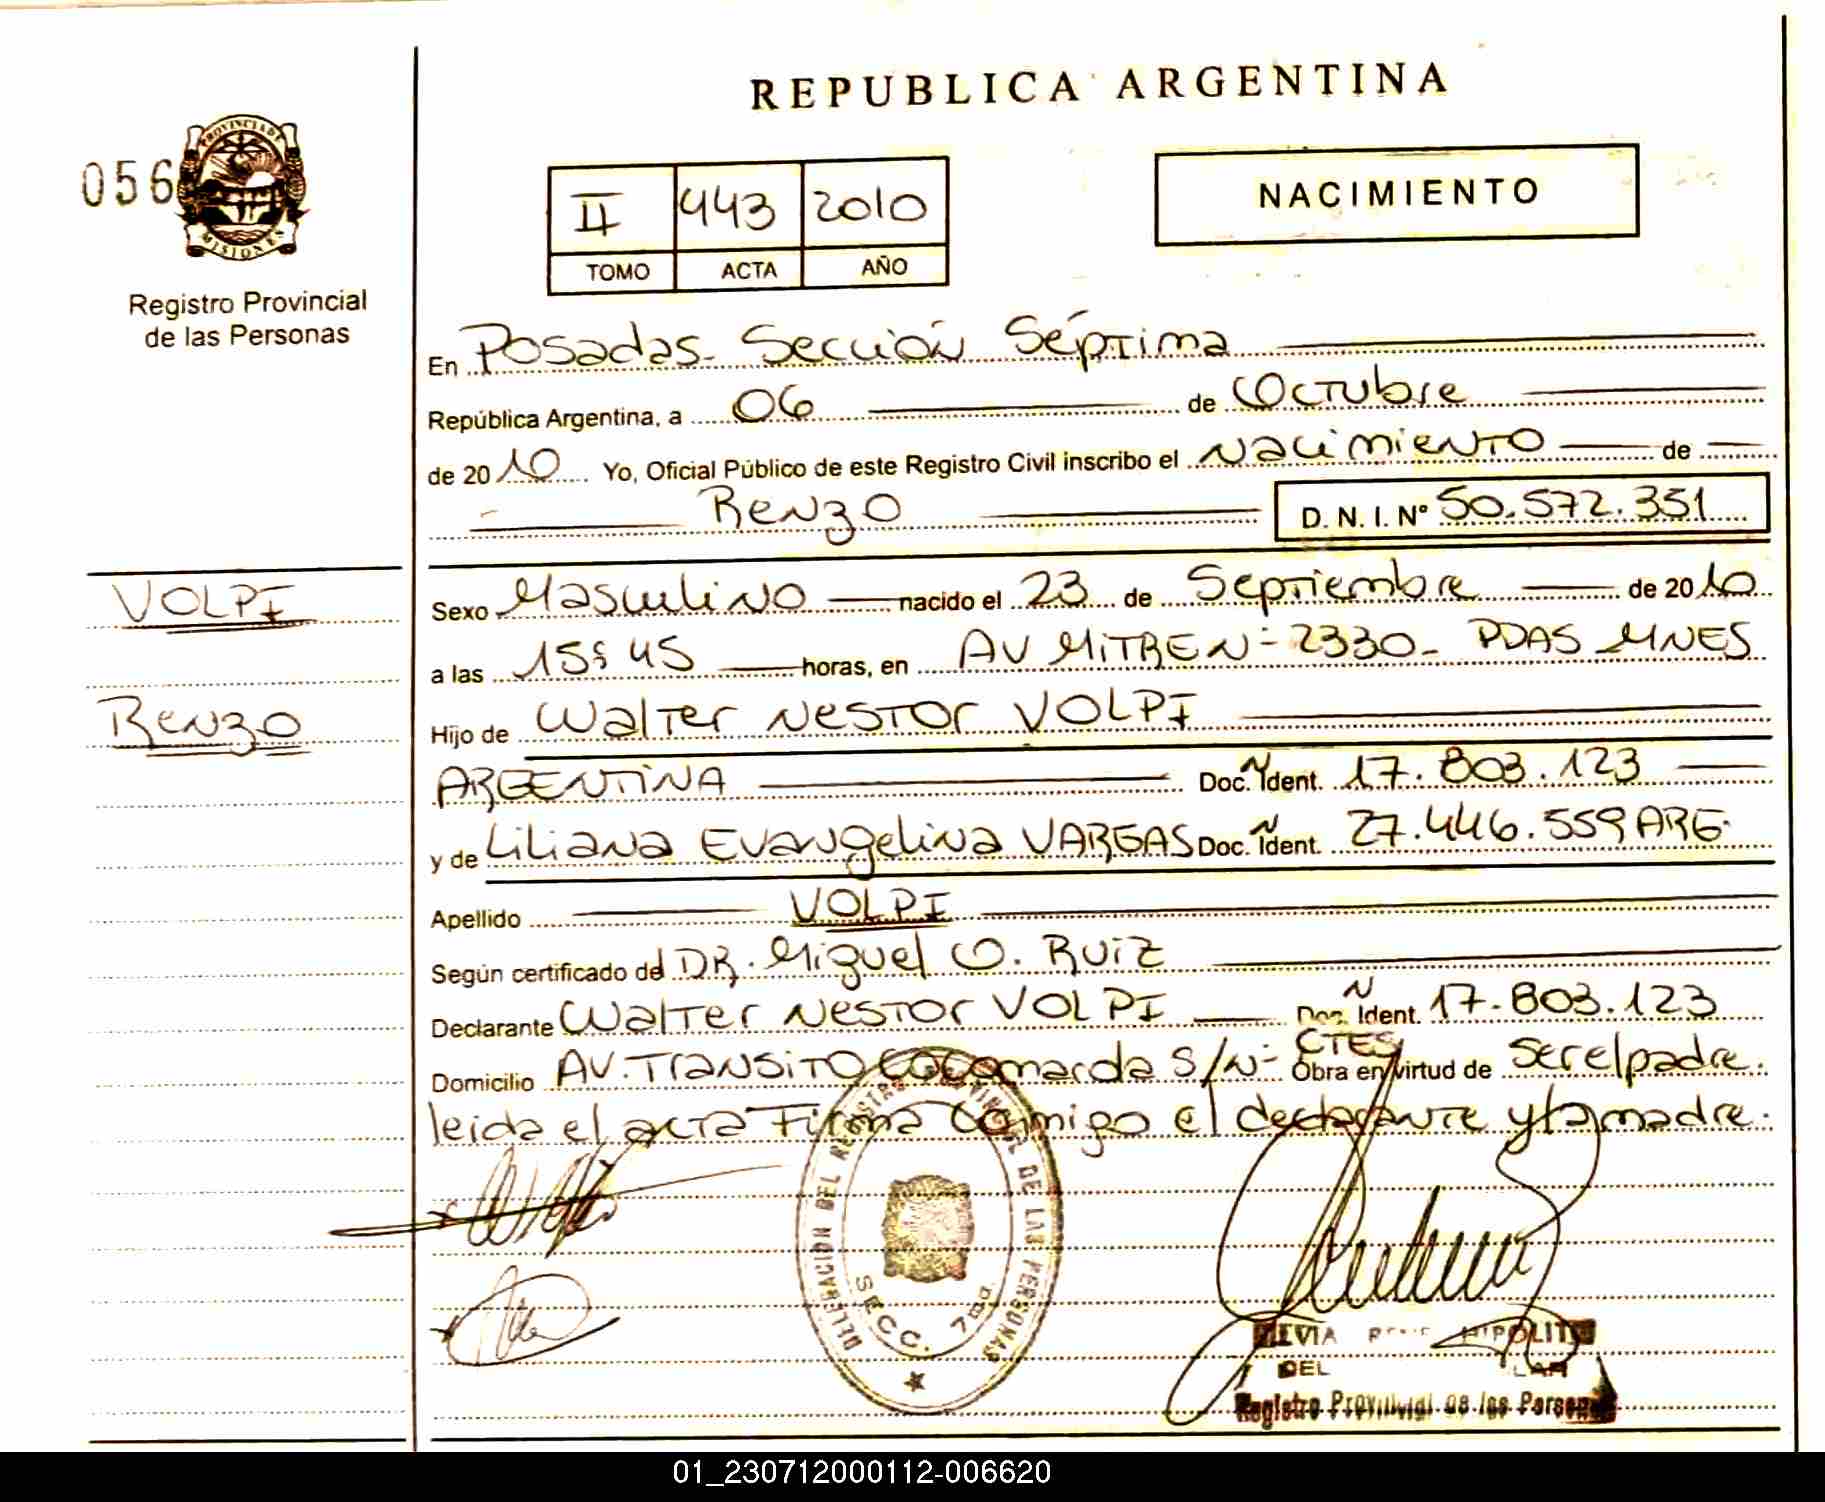 REPUBLICA ARGENTINA
056
PROVINCIA DE
MISIONES
Registro Provincial
de las Personas
II 443 2010
TOMO ACTA AÑO
NACIMIENTO
En Posadas- Sección Séptima
República Argentina, a 06 de Octubre
de 2010 Yo, Oficial Público de este Registro Civil inscribo el Nacimiento de
Renzo D. N. I. Nº 50.572.351
VOLPI
Sexo Masculino nacido el 23 de Septiembre de 2010
a las 15:45 horas, en AV MITRE N- 2330- PDAS MNES
Renzo
Hijo de Walter Nestor VOLPI
ARGENTINA Doc. Ident. 17.803.123
y de Liliana Evangelina VARGAS Doc. Ident. 27.446.559 ARG.
Apellido VOLPI
Según certificado del DR. Miguel O. Ruiz
Declarante Walter Nestor VOLPI Doc. Ident. 17.803.123
Domicilio AV. Transito Cocomarola S/N- CTES Obra en virtud de ser el padre.
leida el acta Firma Conmigo el declarante y la madre.
DELEGACION DEL REGISTRO PROVINCIAL DE LAS PERSONAS
SECC. 7ma
HIPOLITO
DEL
Registro Provincial de las Personas
01_230712000112-006620